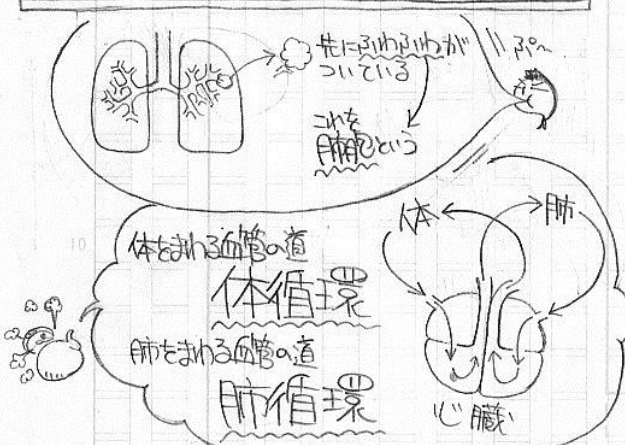 先にふわふわが
ついている
ぷ〜
これを
肺胞という
体
肺
体をまわる血管の道
体循環
肺をまわる血管の道
肺循環
心臓
10